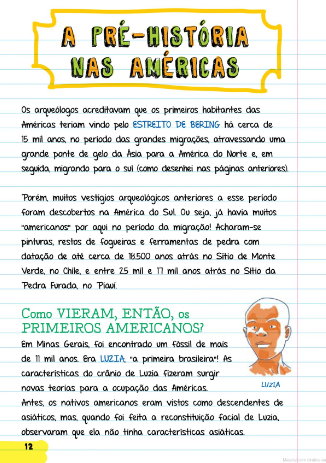 A PRÉ-HISTÓRIA
NAS AMÉRICAS
Os arqueólogos acreditavam que os primeiros habitantes das
Américas teriam vindo pelo ESTREITO DE BERING há cerca de
15 mil anos, no período das grandes migrações, atravessando uma
grande ponte de gelo da Ásia para a América do Norte e, em
seguida, migrando para o sul (como desenhei nas páginas anteriores).
Porém, muitos vestígios arqueológicos anteriores a esse período
foram descobertos na América do Sul. Ou seja, já havia muitos
"americanos" por aqui no período da migração! Acharam-se
pinturas, restos de fogueiras e ferramentas de pedra com
datação de até cerca de 18.500 anos atrás no Sítio de Monte
Verde, no Chile, e entre 25 mil e 17 mil anos atrás no Sítio da
Pedra Furada, no Piauí.
Como VIERAM, ENTÃO, os
PRIMEIROS AMERICANOS?
Em Minas Gerais, foi encontrado um fóssil de mais
de 11 mil anos. Era LUZIA, "a primeira brasileira"! As
características do crânio de Luzia fizeram surgir
novas teorias para a ocupação das Américas.
LUZIA
Antes, os nativos americanos eram vistos como descendentes de
asiáticos, mas, quando foi feita a reconstituição facial de Luzia,
observaram que ela não tinha características asiáticas.
12